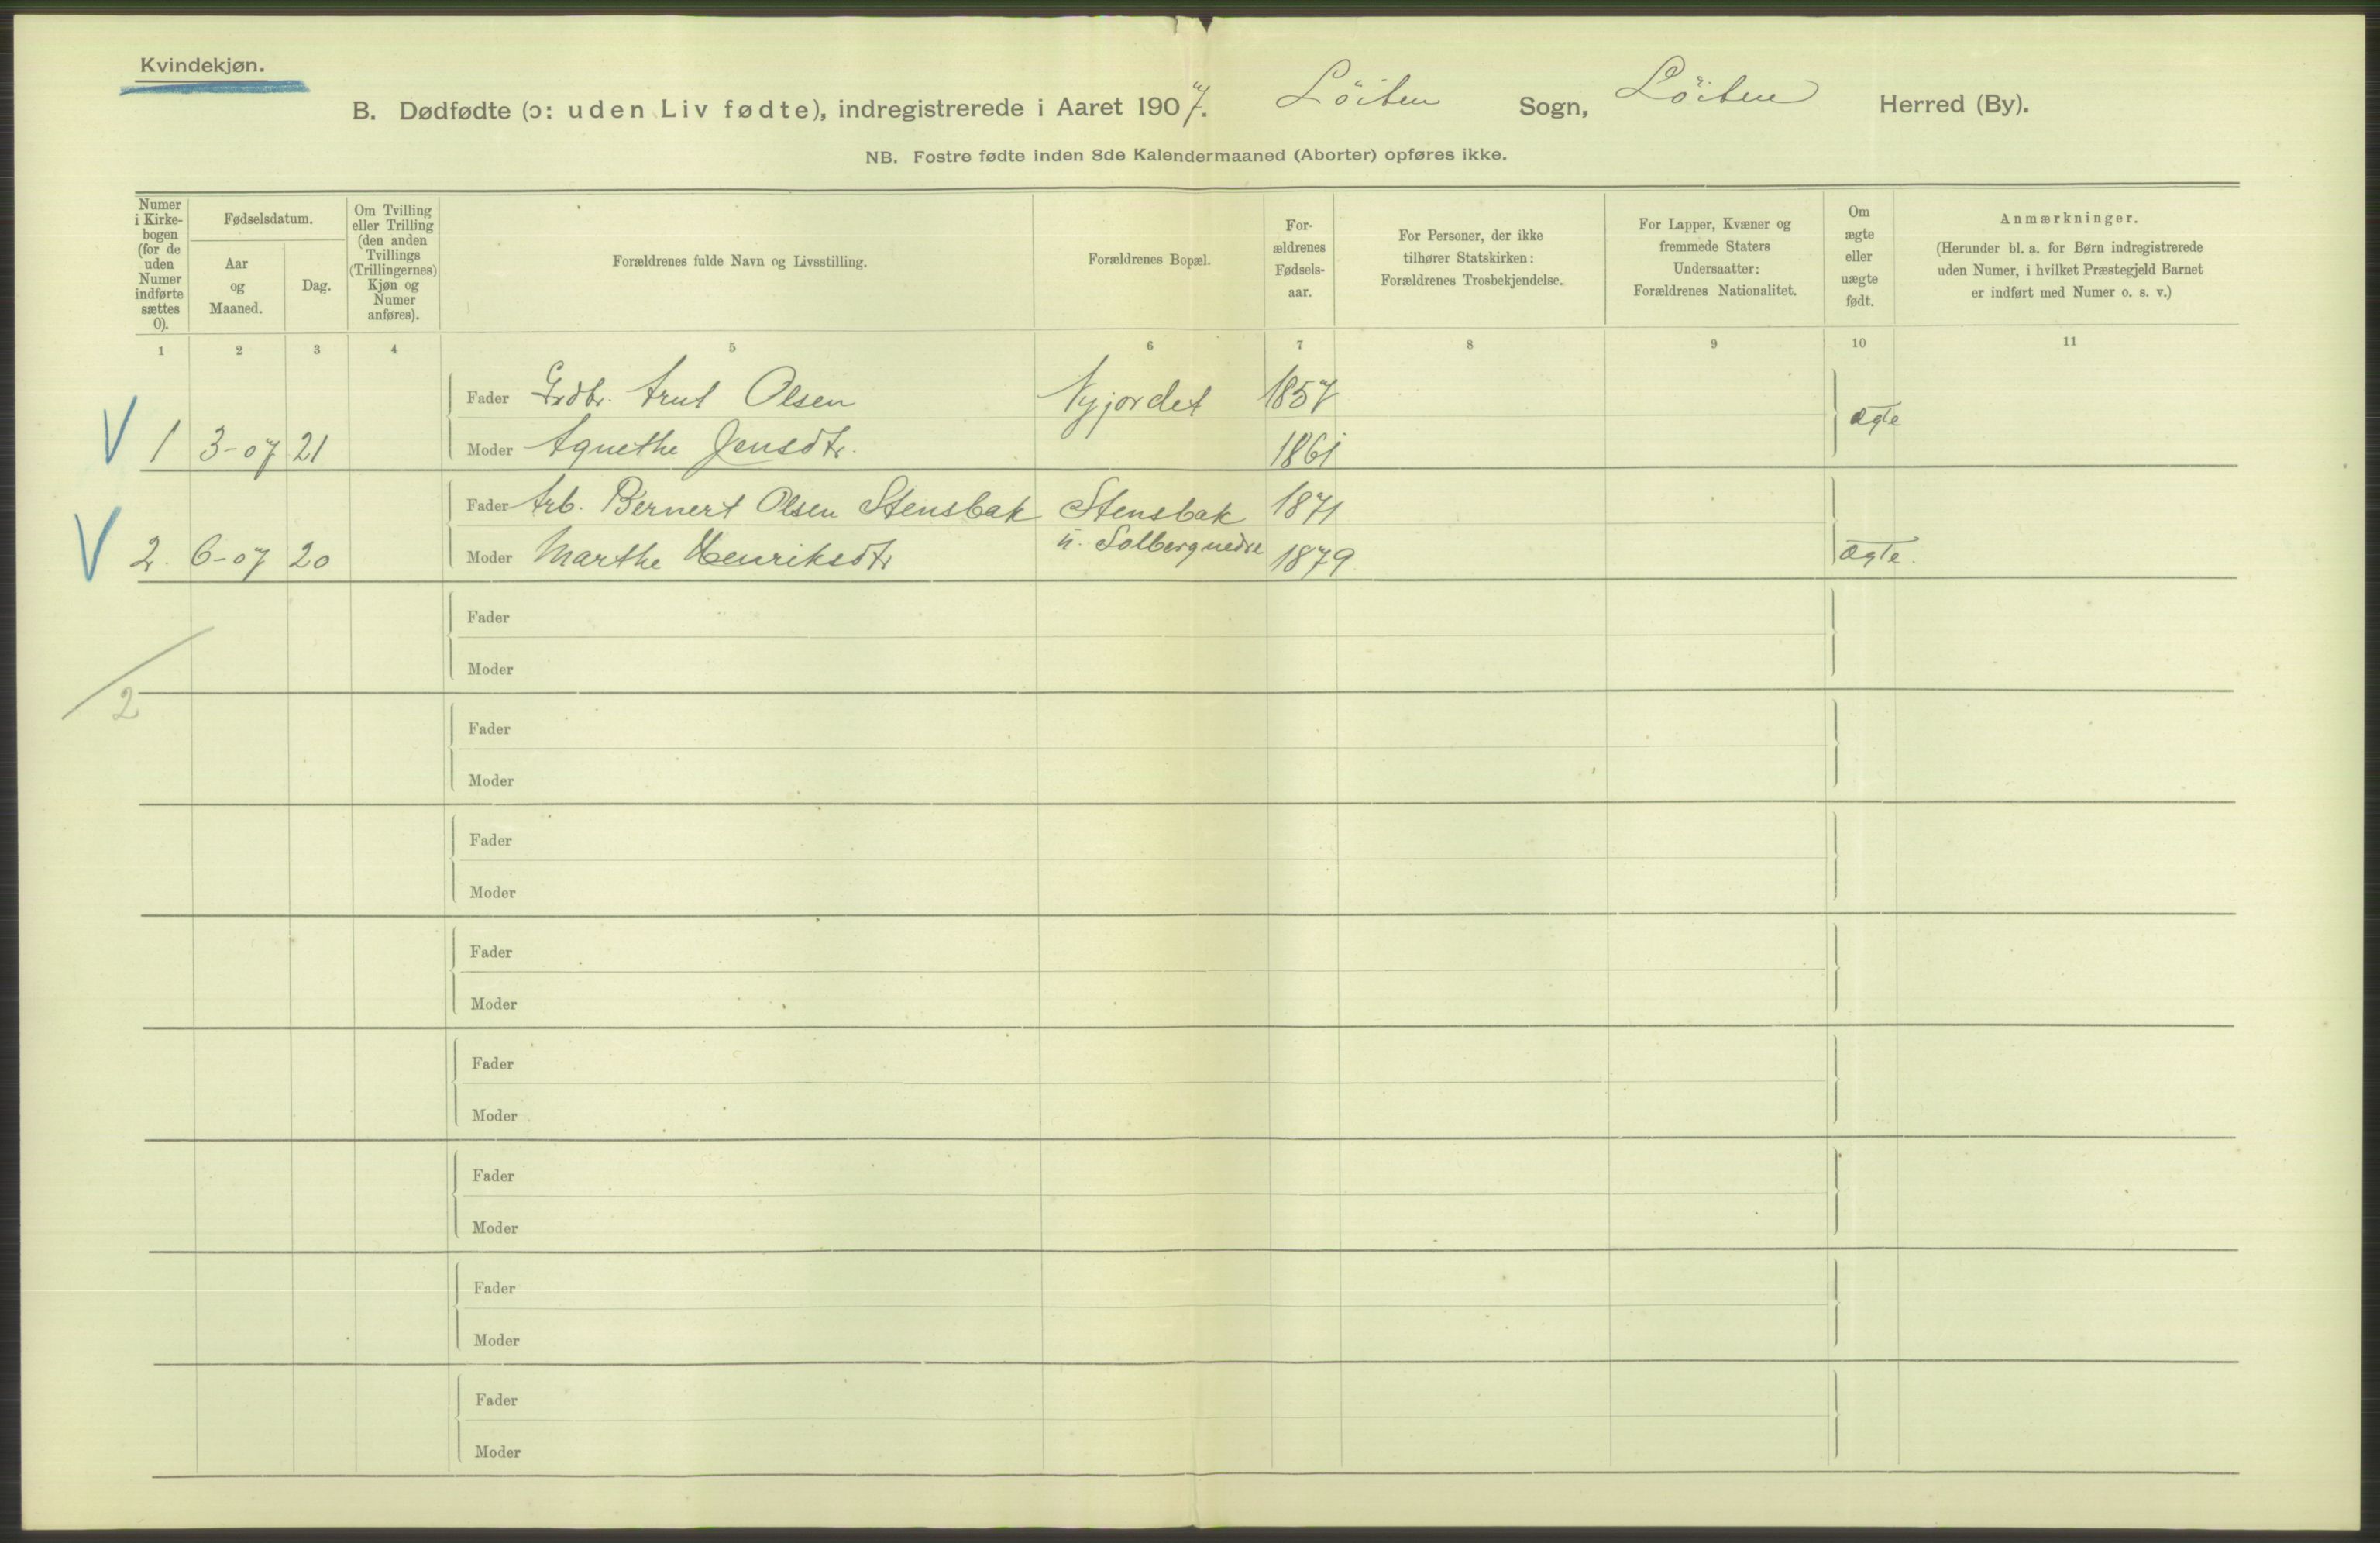 Kvindekjøn.
B. Dødfødte (ɔ: uden Liv fødte), indregistrerede i Aaret 1907. Löiten Sogn, Löiten Herred (By).
NB. Fostre fødte inden 8de Kalendermaaned (Aborter) opføres ikke.
Numer i Kirke-bogen (for de uden Numer indførte sættes 0).
Fødselsdatum.
Aar og Maaned.
Dag.
Om Tvilling eller Trilling (den anden Tvillings (Trillingernes) Kjøn og Numer anføres).
Forældrenes fulde Navn og Livsstilling.
Forældrenes Bopæl.
For-ældrenes Fødsels-aar.
For Personer, der ikke tilhører Statskirken: Forældrenes Trosbekjendelse.
For Lapper, Kvæner og fremmede Staters Undersaatter: Forældrenes Nationalitet.
Om ægte eller uægte født.
Anmærkninger.
(Herunder bl. a. for Børn indregistrerede uden Numer, i hvilket Præstegjeld Barnet er indført med Numer o. s. v.)
1 2 3 4 5 6 7 8 9 10 11
Fader Grdbr. Arnt Olsen Nyjordet 1857
V 1 3-07 21 Moder Agnethe Jensdtr. 1861 Ægte
Fader Arb. Bernert Olsen Stensbak Stensbak 1871
V 2. 6-07 20 Moder Marthe Henriksdtr u. Solberg nedre 1879 Ægte.
Fader
Moder
2
Fader
Moder
Fader
Moder
Fader
Moder
Fader
Moder
Fader
Moder
Fader
Moder
Fader
Moder